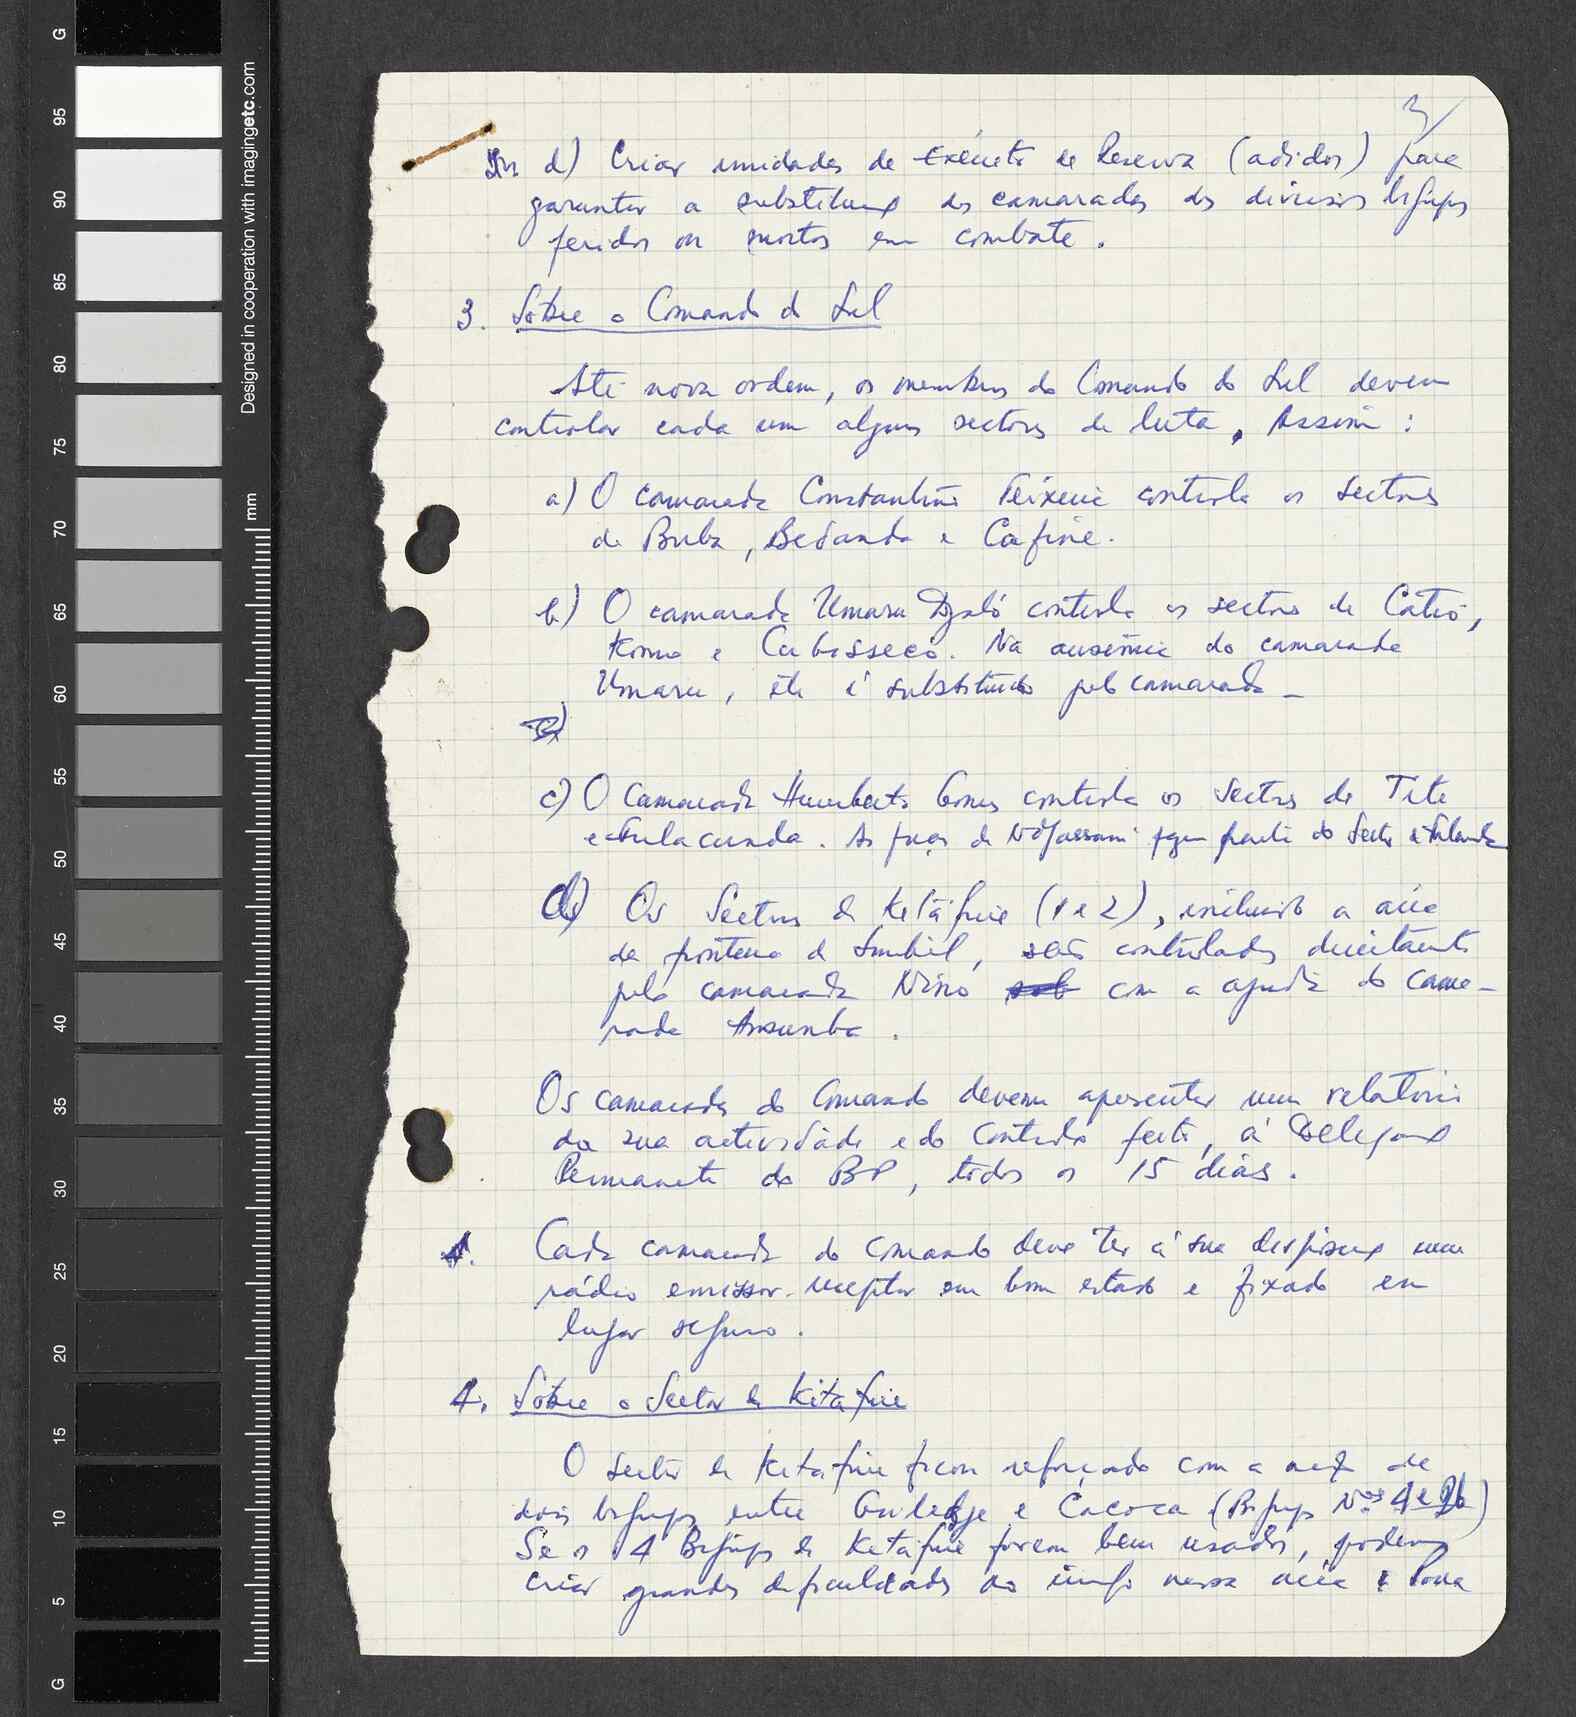 3/
d) Criar unidades de Exército de Reserva (adidos) para
garantir a substituição dos camaradas dos diversos bigrupos
feridos ou mortos em combate.
3. Sôbre o Comando do Sul
Até nova ordem, os membros do Comando do Sul devem
controlar cada um alguns sectores de luta. Assim:
a) O camarada Constantino Teixeira controla os sectores
de Buba, Bedanda e Cafine.
b) O camarada Umaru Djaló controla os sectores de Catió,
Komo e Cubisseco. Na ausência do camarada
Umaru, êle é substituído pelo camarada _
c) O camarada Humberto Gomes controla os sectores de Tite
e Fulacunda. As fôrças de N'Djassani fazem parte do Sector de Fulacunda
d) Os Sectores de Kitáfine (1 e 2), incluindo a área
da fronteira de Simbil, serão controlados directamente
pelo camarada Nino sob com a ajuda do cama-
rada Ansumba.
Os camaradas do Comando devem apresentar um relatório
da sua actividade e do contrôlo feito, à Delegação
Permanente do BP, todos os 15 dias.
Cada camarada do Comando deve ter à sua disposição um
rádio emissor-receptor em bom estado e fixado em
lugar seguro.
4. Sôbre o Sector de Kitáfine
O sector de Kitáfine ficou reforçado com a acção de
dois bigrupos entre Guiledje e Cacoca (Bigrupos Nos 4 e 26)
Se os 4 Bigrupos de Kitáfine forem bem usados, podemos
criar grandes dificuldades ao inimigo nessa área e